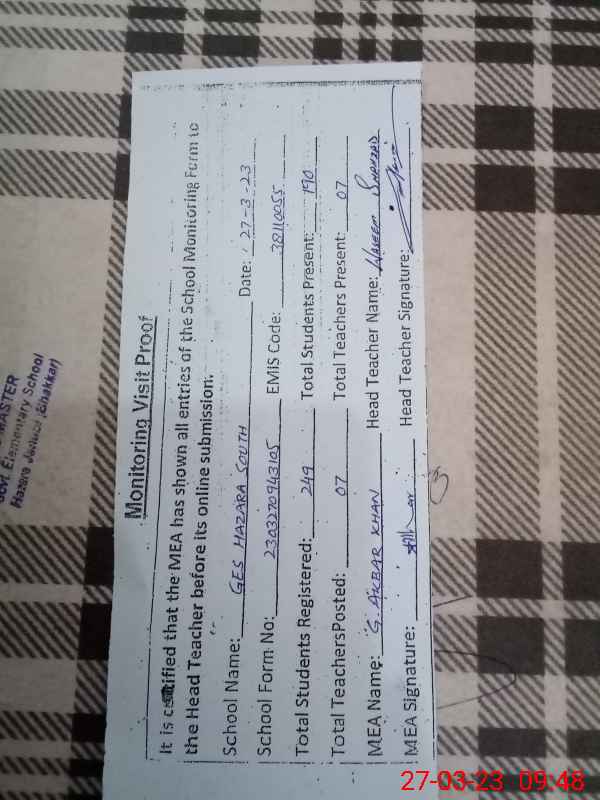 Monitoring Visit Proof
It is certified that the MEA has shown all entries of the School Monitoring Form to
the Head Teacher before its online submission.
School Name: GES HAZARA SOUTH Date: 27-3-23
School Form No: 2303270943105 EMIS Code: 38110055
Total Students Registered: 249 Total Students Present: 190
Total TeachersPosted: 07 Total Teachers Present: 07
MEA Name: G. AKBAR KHAN Head Teacher Name: SHAHZAD
MEA Signature: Head Teacher Signature:
MASTER
Govt. Elementary School
Hazara (Bhakkar)
27-03-23 09:48